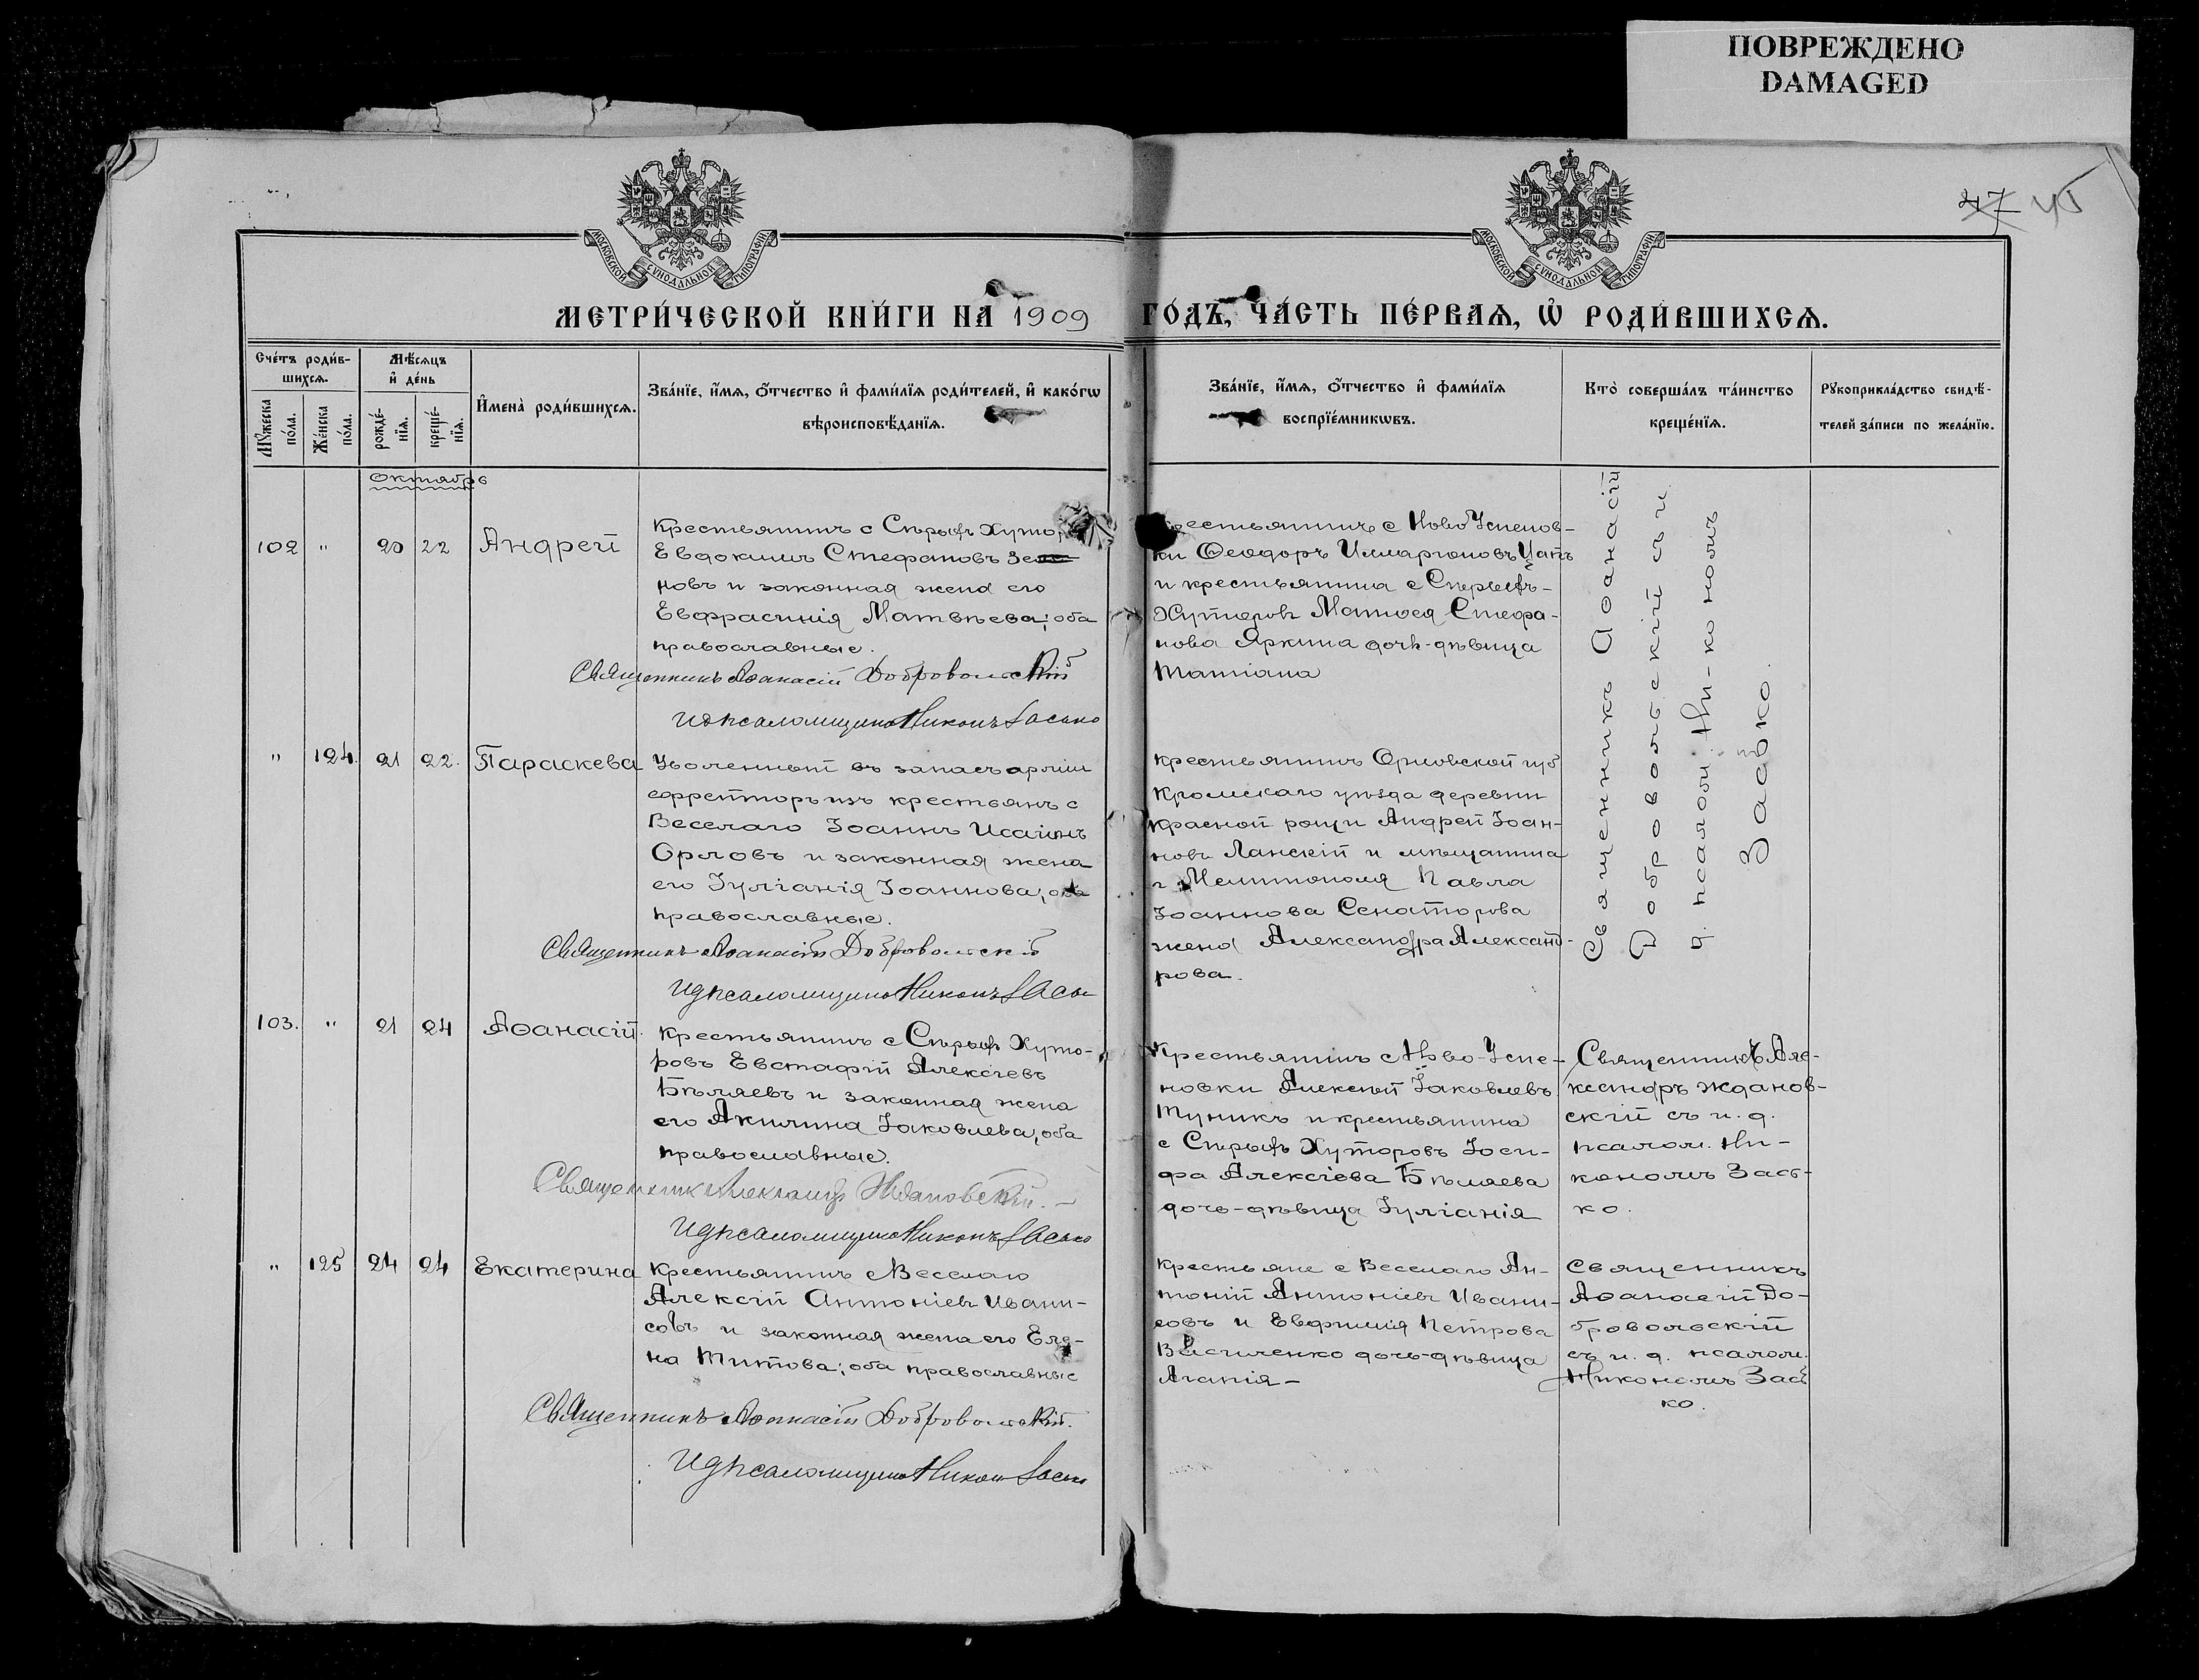 ПОВРЕЖДЕНО
DAMAGED
47 45
МОСКОВСКОЙ СѴНОДАЛЬНОЙ ТИПОГРАФІИ
МОСКОВСКОЙ СѴНОДАЛЬНОЙ ТИПОГРАФІИ
МЕТРИ́ЧЕСКОЙ КНИ́ГИ НА 1909 ГО́ДЪ, ЧА́СТЬ ПЕ́РВАѦ, Ѡ҆ РОДИ́ВШИХСѦ.
Сче́тъ роди́в-
шихсѧ.
Мꙋ́жеска по́ла.
Же́нска по́ла.
Мѣ́сѧцъ
и҆ де́нь
рожде́-
нїѧ.
креще́-
нїѧ.
И҆мена̀ роди́вшихсѧ.
Зва́нїе, и҆́мѧ, ѻ҆́тчество и҆ фами́лїѧ роди́телей, и҆ како́гѡ
вѣроисповѣ́данїѧ.
Зва́нїе, и҆́мѧ, ѻ҆́тчество и҆ фами́лїѧ
воспрїе́мникѡвъ.
Кто̀ соверша́лъ та́инство
креще́нїѧ.
Рꙋкоприкла́дство свидѣ́-
телей за́писи по жела́нїю.
Октябрь
102 " 20 22 Андрей
Крестьянинъ с Сѣрыхъ Хуто
Евдокимъ Стефановъ Зе
новъ и законная жена его
Евфрасинія Матвѣева; оба
православные.
Священникъ Аѳанасій Добровольскій
Ид псаломщика Никонъ Засько
крестьянинъ с Ново Успенов-
ки Ѳеодоръ Илларіоновъ Цапъ
и крестьянина с Сѣрыхъ-
Хуторовъ Матѳея Стефа-
нова Яркина дочь-дѣвица
Татіана
Священникъ Аѳанасій
Добровольскій съ и
д. псалом. Ни-кономъ
Засько.
" 124. 21 22. Параскева
Уволенный въ запасъ арміи
ефрейторъ изъ крестьянъ с
Веселаго Іоаннъ Исаіинъ
Орловъ и законная жена
его Іуліанія Іоаннова, оба
православные.
Священникъ Аѳанасій Добровольскій
Ид псаломщика Никонъ Засько
крестьянинъ Орловской губ
Кромскаго уѣзда деревни
Красной рощи Андрей Іоан-
новъ Ланскій и мѣщанина
г Мелитополя Павла
Іоаннова Сенаторова
жена Александра Александ-
рова.
103. " 21 24 Аѳанасій.
Крестьянинъ с Сѣрыхъ Хуто-
ровъ Евстафій Алексіевъ
Бѣляевъ и законная жена
его Акилина Іаковлева, оба
православные.
Священник Александръ Ждановскій.
Ид псаломщика Никонъ Засько
Крестьянинъ с Ново-Успе-
новки Алексѣй Іаковлевъ
Туникъ и крестьянина
с Сѣрыхъ Хуторовъ Іоси-
фа Алексіева Бѣляева
дочь-дѣвица Іуліанія
Священникъ Але-
ксандръ Жданов-
скій съ и. д.
псалом. Ни-
кономъ Зась-
ко.
" 125 24 24 Екатерина
Крестьянинъ с Веселаго
Алексій Антоніевъ Ивани-
совъ и законная жена его Еле-
на Титова; оба православные
Священникъ Аѳанасій Добровольскій.
Ид псаломщика Никон Засько
Крестьяне с Веселаго Ан-
тоній Антоніевъ Ивани-
совъ и Евфимія Петрова
Василенко дочь-дѣвица
Агапія-
Священникъ
Аѳанасій До-
бровольскій
съ и. д. псалом.
Никономъ Зась
ко.